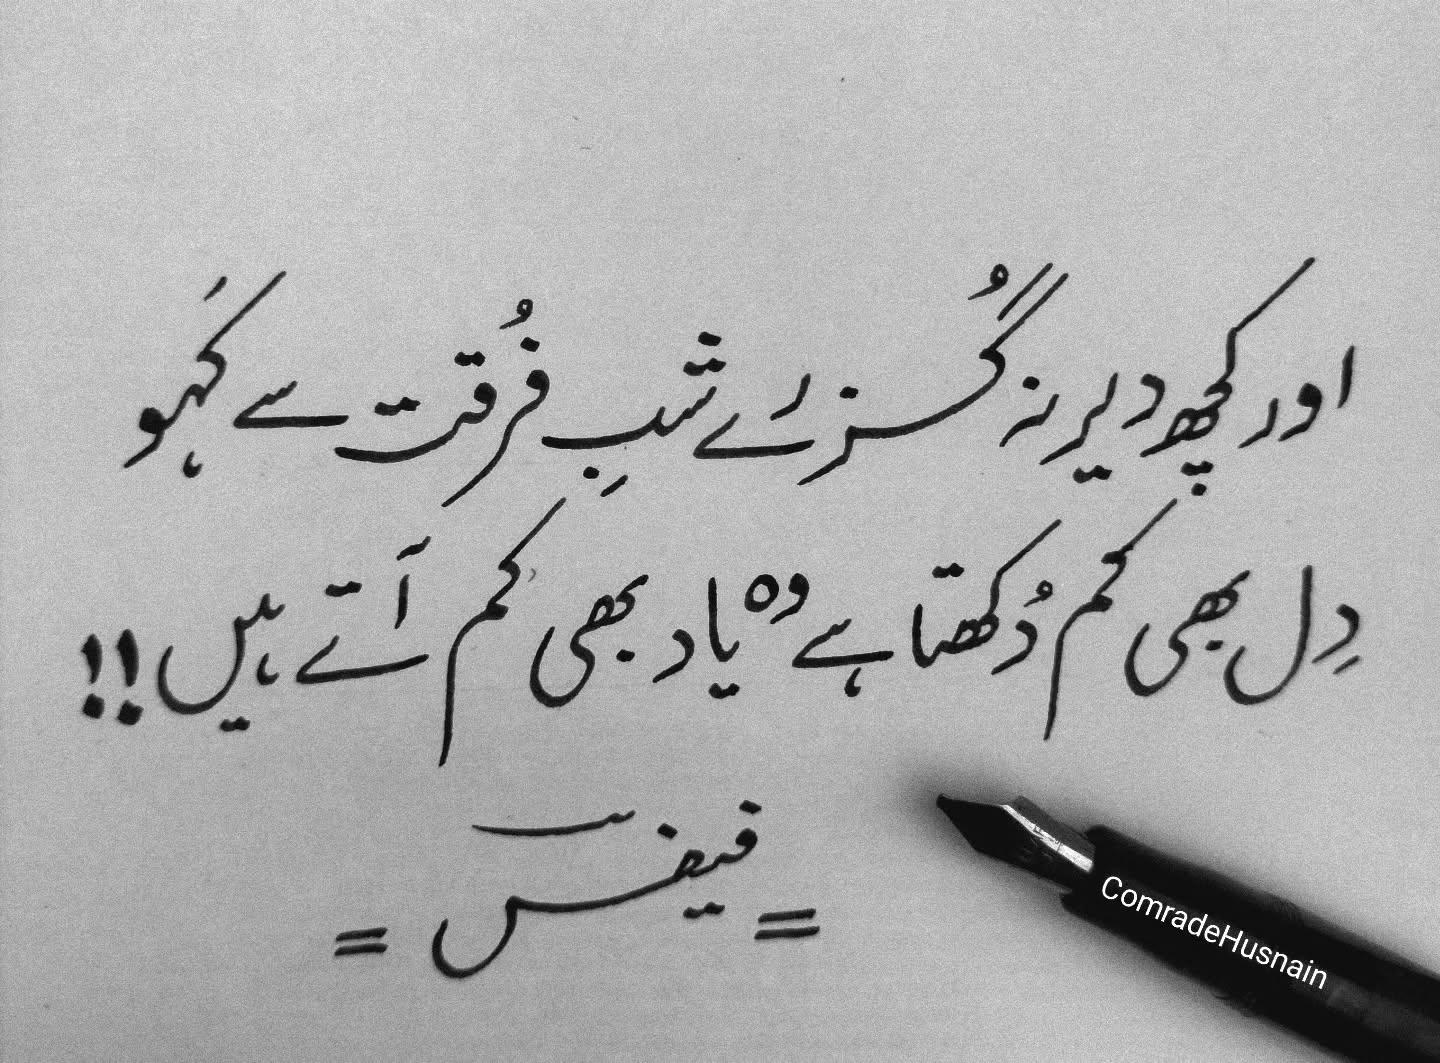 اور کچھ دیر نہ گُزرے شبِ فُرقت سے کَہو
دِل بھی کم دُکھتا ہے وہ یاد بھی کم آتے ہیں!!
= فیض =
ComradeHusnain